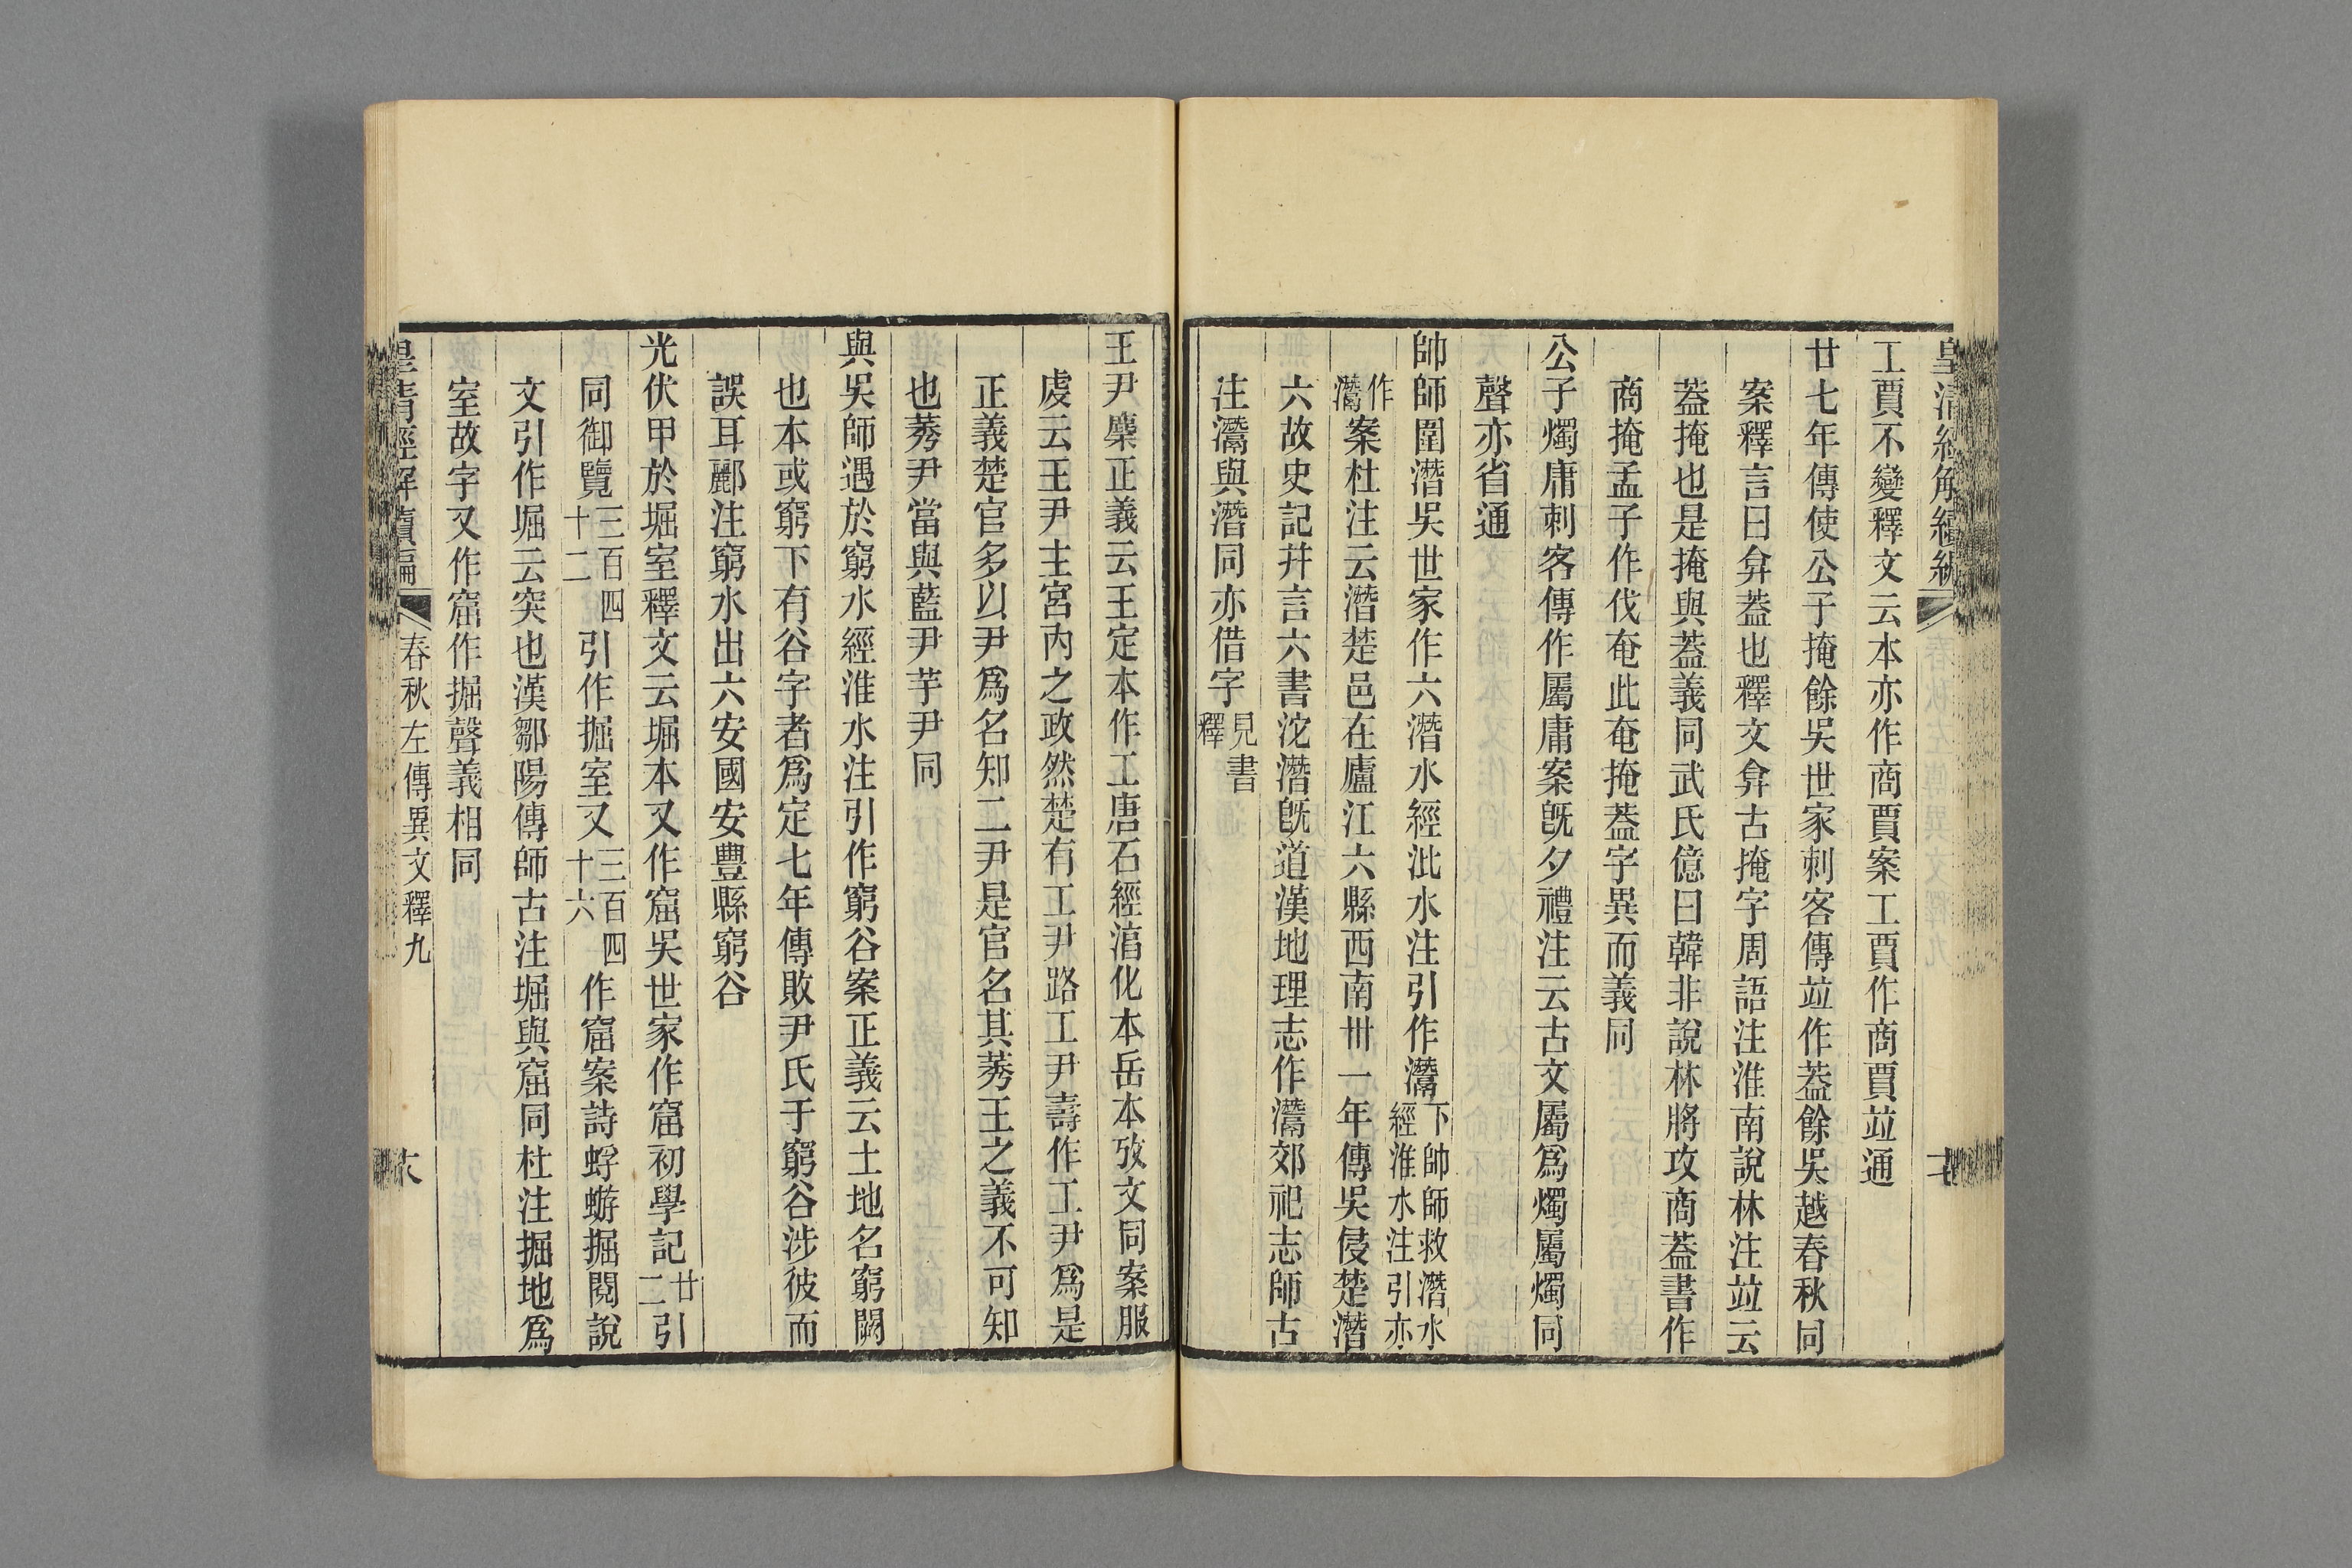 皇清經解續編
工賈不變釋文云本亦作商賈案工賈作商賈竝通
廿七年傳使公子掩餘吳世家刺客傳竝作蓋餘吳越春秋同
案釋言曰弇蓋也釋文弇古掩字周語注淮南說林注竝云
蓋掩也是掩與蓋義同武氏億曰韓非說林將攻商蓋書作
商掩孟子作伐奄此奄掩蓋字異而義同
公子燭庸刺客傳作屬庸案旣夕禮注云古文屬爲燭屬燭同
聲亦省通
帥師圍潛吳世家作六潛水經沘水注引作灊下帥師救潛水經淮水注引亦
作灊案杜注云潛楚邑在廬江六縣西南卅一年傳吳侵楚潛
六故史記幷言六書沱潛旣道漢地理志作灊郊祀志師古
注灊與潛同亦借字見書釋
王尹麋正義云王定本作工唐石經湻化本岳本攷文同案服
虔云王尹主宮內之政然楚有工尹路工尹壽作工尹爲是
正義楚官多以尹爲名知二尹是官名其莠王之義不可知
也莠尹當與藍尹芋尹同
與吳師遇於窮水經淮水注引作窮谷案正義云土地名窮闕
也本或窮下有谷字者爲定七年傳敗尹氏于窮谷涉彼而
誤耳酈注窮水出六安國安豐縣窮谷
光伏甲於堀室釋文云堀本又作窟吳世家作窟初學記廿二引
同御覽三百四十二引作掘室又三百四十六作窟案詩蜉蝣掘閱說
文引作堀云突也漢鄒陽傳師古注堀與窟同杜注掘地爲
室故字又作窟作掘聲義相同
皇清經解續編
春秋左傳異文釋九